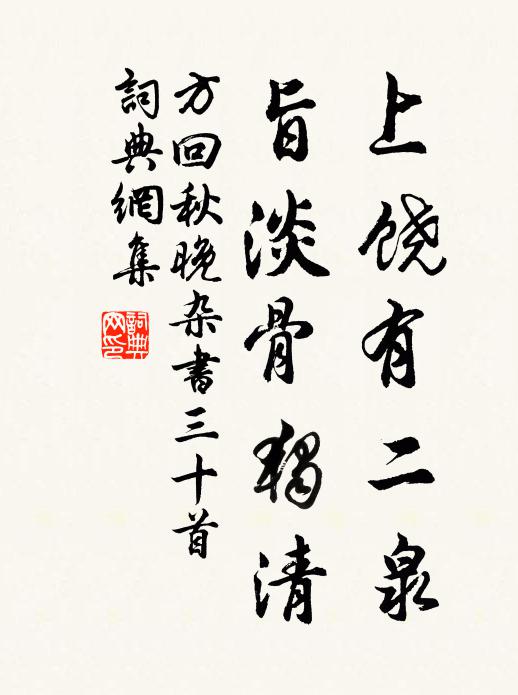 上饶有二泉
旨淡骨獨清
方回秋晚杂書三十首
詞典網集
詞典网印